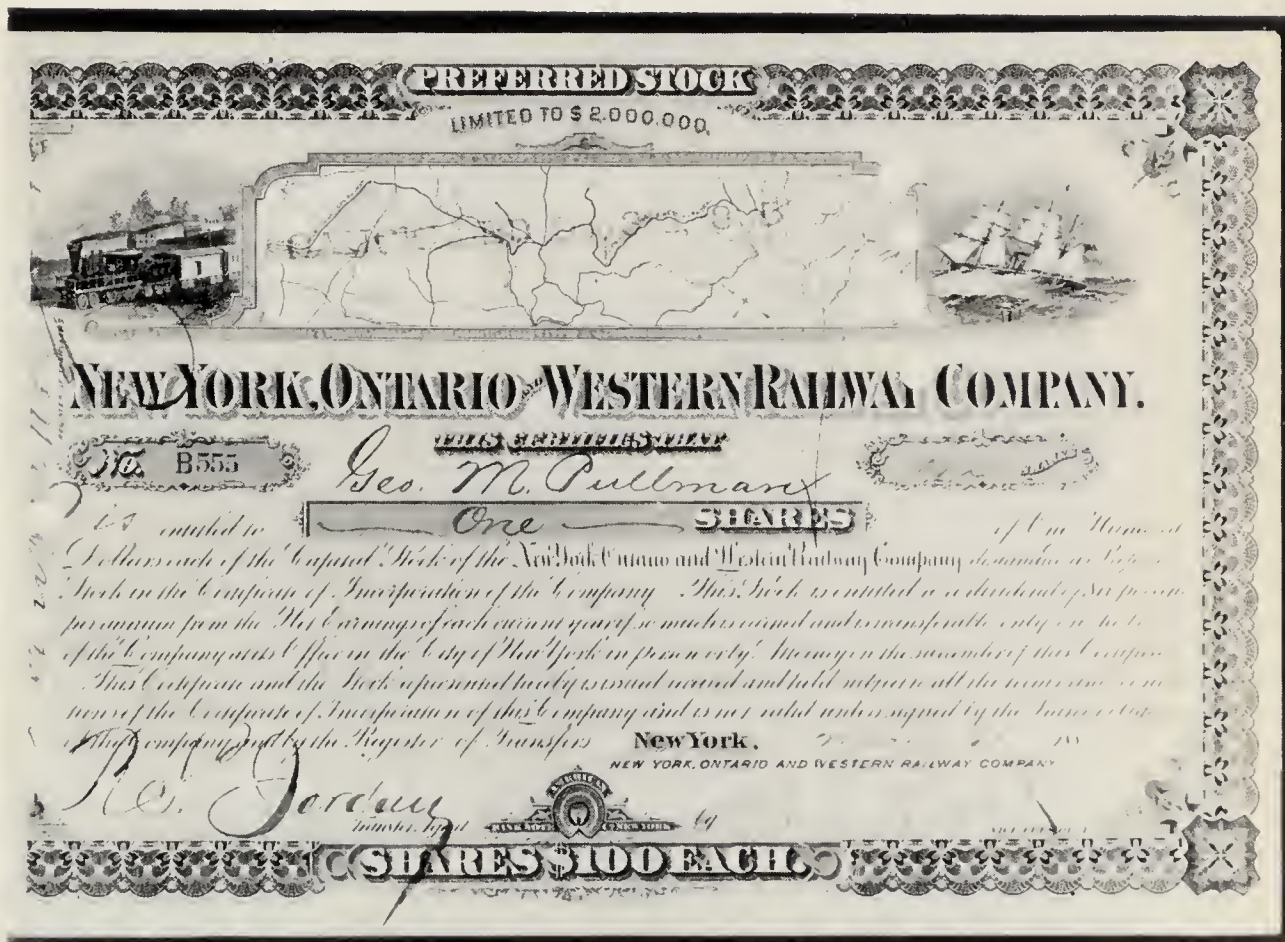 PREFERRED STOCK
LIMITED TO $2,000,000.
NEW YORK, ONTARIO AND WESTERN RAILWAY COMPANY.
THIS CERTIFIES THAT
No. B555
Geo. M. Pullman
is entitled to One SHARES of One Hundred
Dollars each of the Capital Stock of the New York Ontario and Western Railway Company
Stock in the Certificate of Incorporation of the Company This Stock is entitled to a dividend of Six per cent
per annum from the Net Earnings of each current year if so much is earned and is transferable only on the
of the Company at its Office in the City of New York in person or by Attorney on the surrender of this
This Certificate and the Stock represented hereby is issued and held subject to all the terms and
of the Certificate of Incorporation of this Company and is not valid unless signed by the
of the Company and by the Register of Transfers New York,
NEW YORK, ONTARIO AND WESTERN RAILWAY COMPANY
Transfer Agent
AMERICAN
BANK NOTE CO. NEW YORK
by
SHARES $100 EACH.